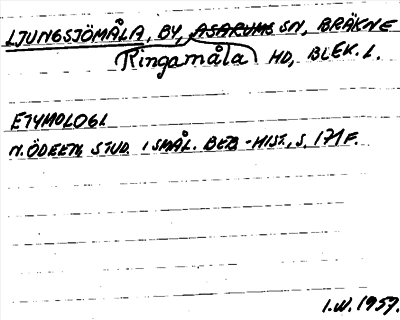 LJUNGSJÖMÅLA, BY, ASARUMS SN, BRÄKNE
Ringamåla HD, BLEK. L.
ETYMOLOGI
N. ÖDEEN, STUD. I SMÅL. BEB-HIST, S. 171 F.
I.W. 1957.